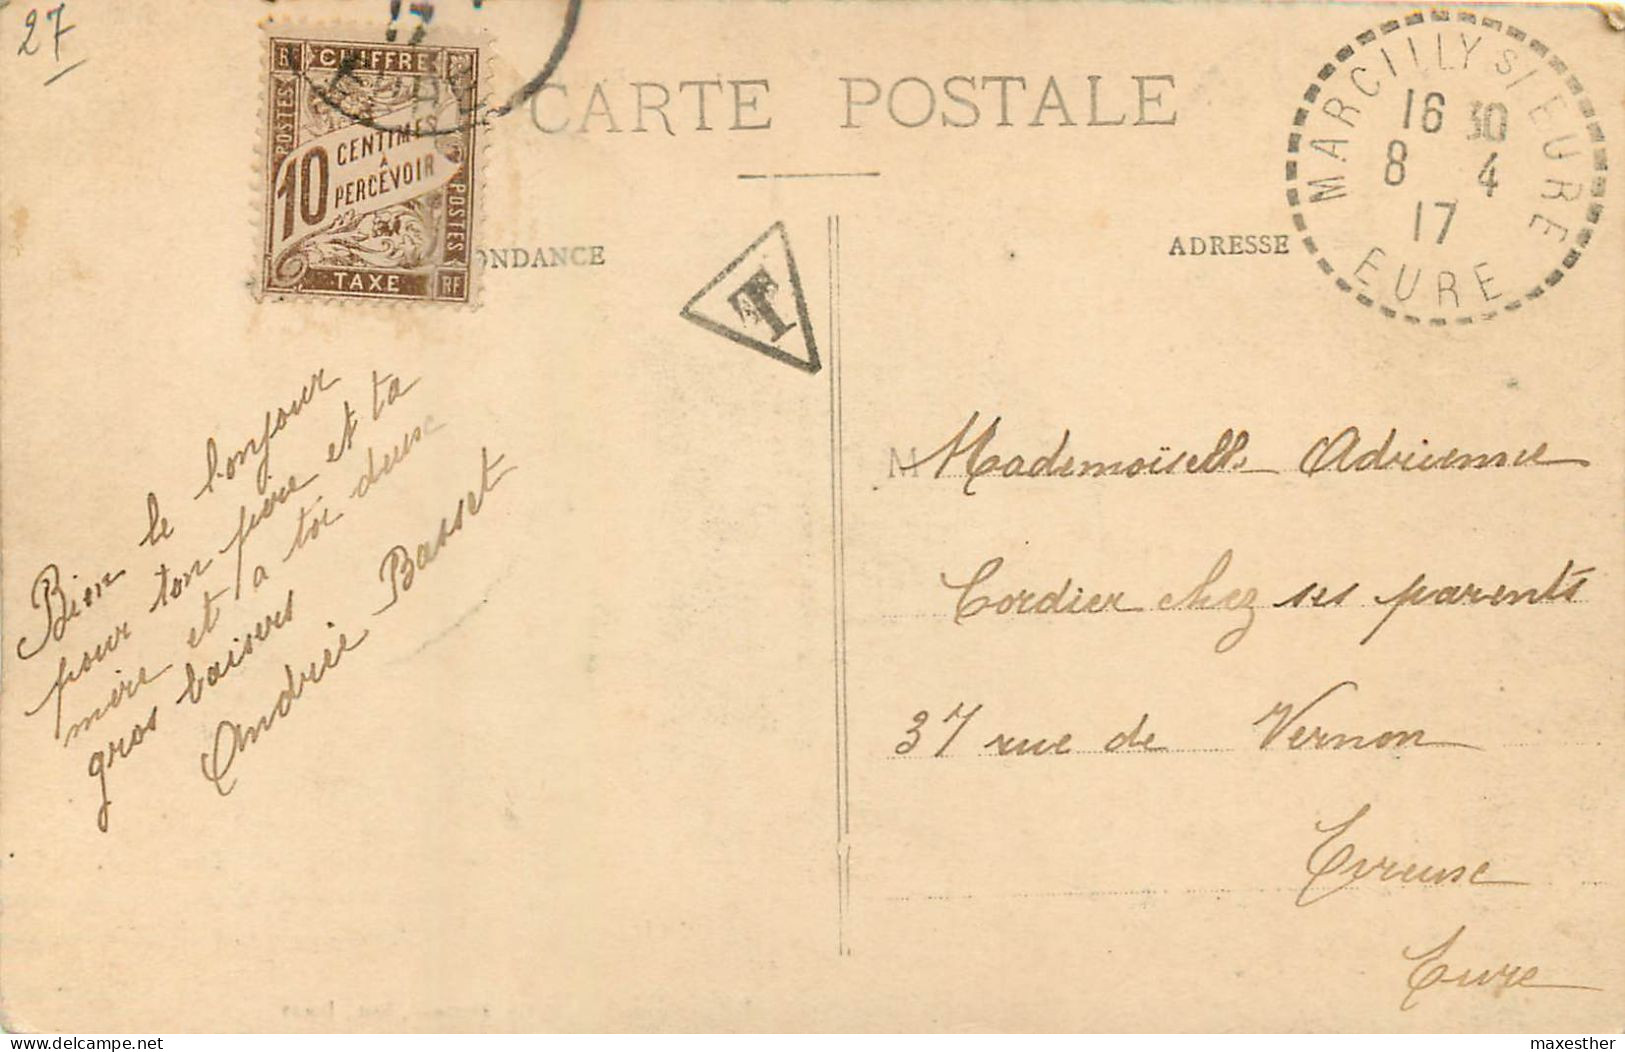 27
CHIFFRE
POSTES
10
CENTIMES
A
PERCEVOIR
POSTES
TAXE
RF
CARTE POSTALE
ONDANCE
T
ADRESSE
MARCILLY S/ EURE
16 30
8 4
17
EURE
Bien le bonjour
pour ton père et ta
mère et a toi deux
gros baisers
Andrée Basset
M
Mademoïselle Adrienne
Cordier chez ses parents
37 rue de Vernon
Evreux
Eure
delcampe.net
maxesther